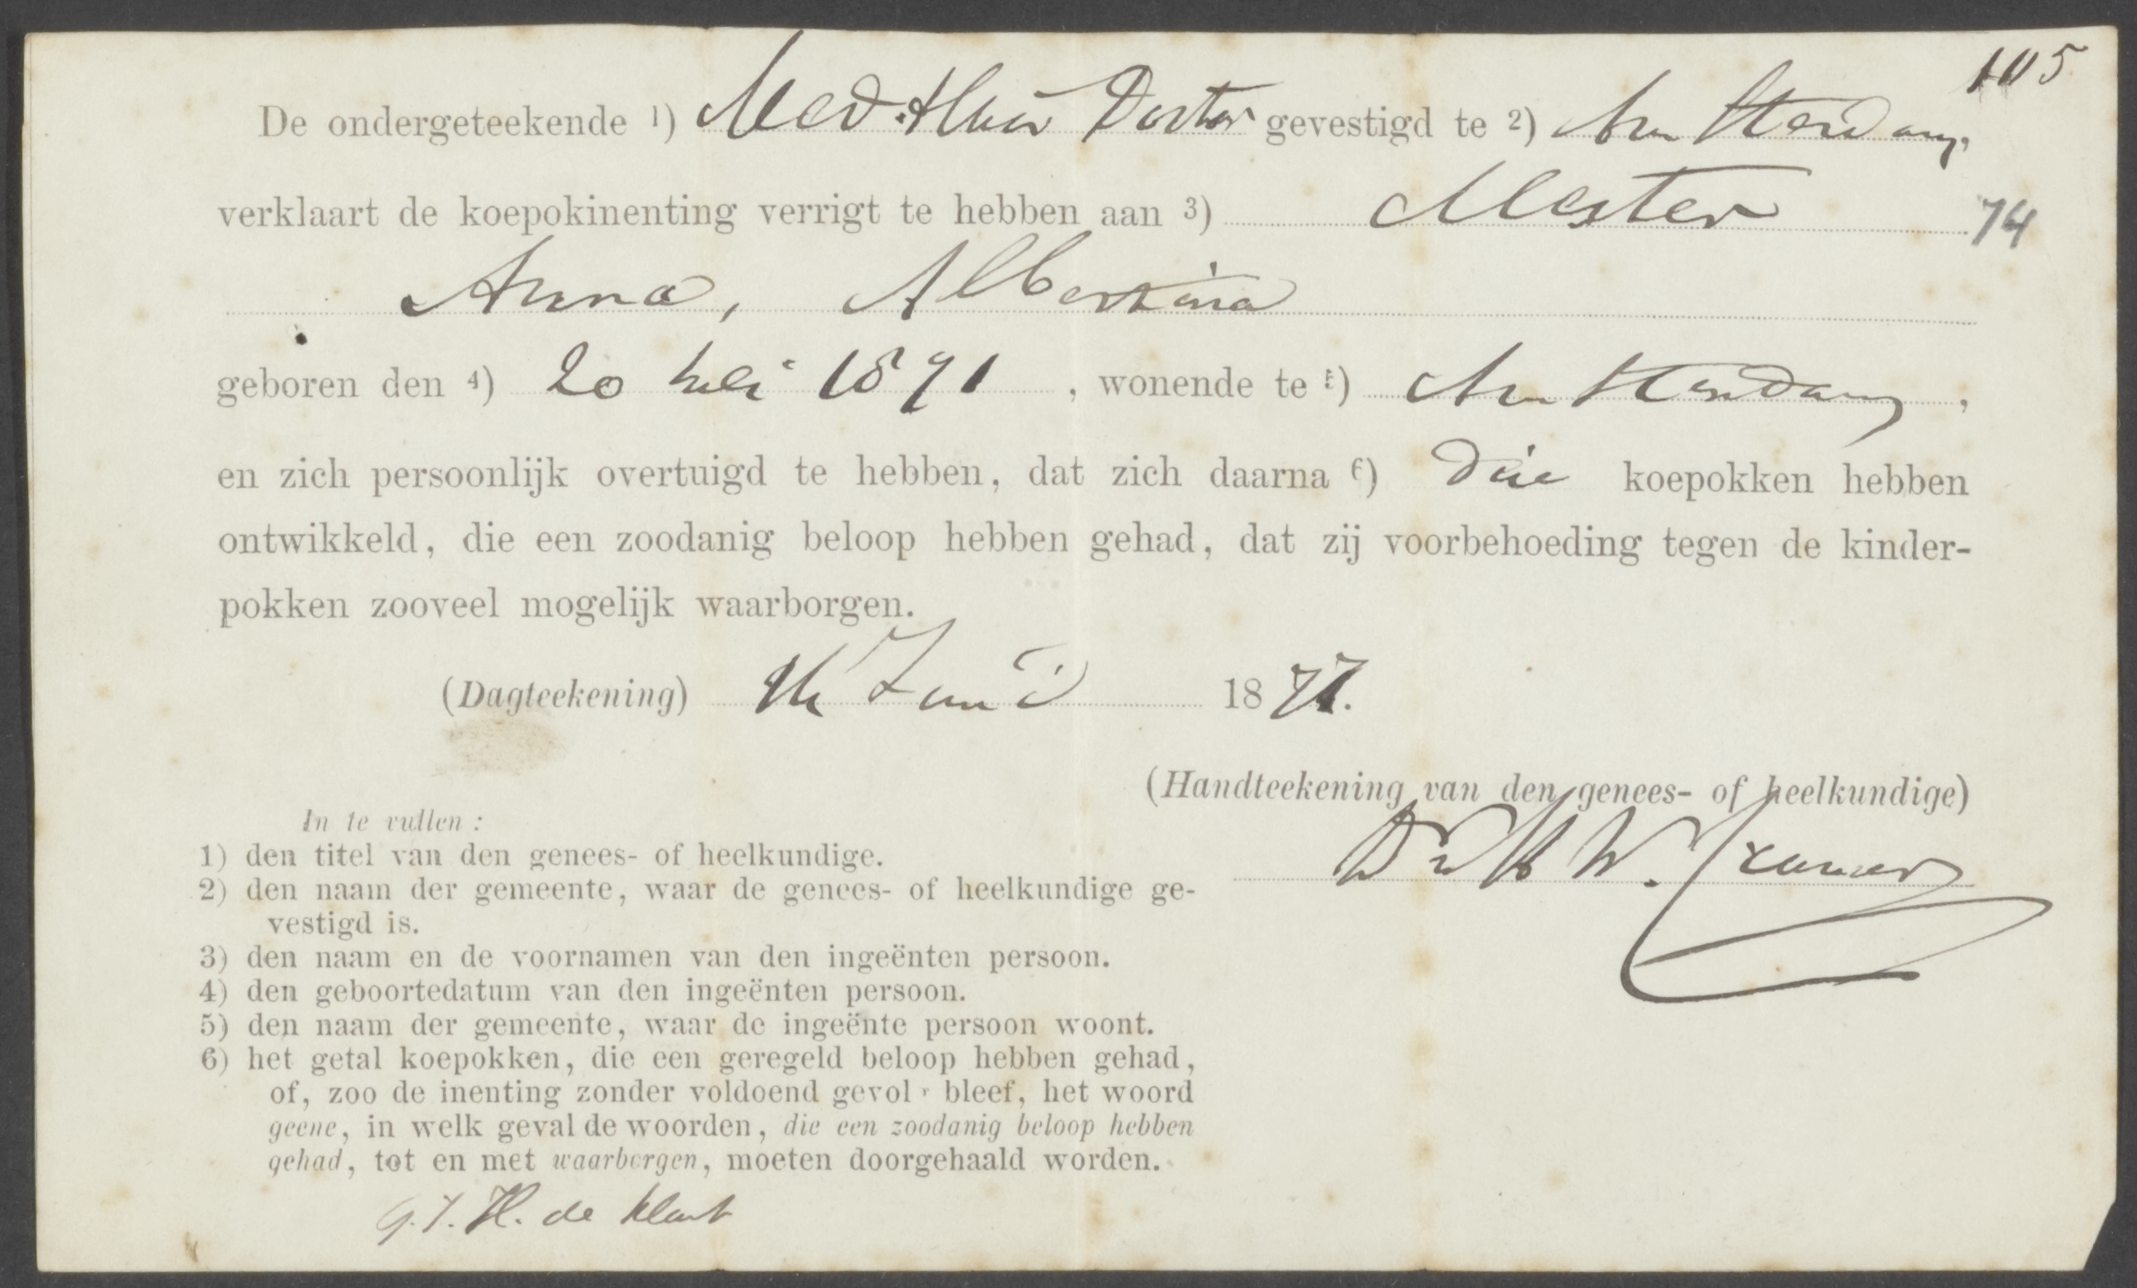 105
De ondergeteekende 1) Med. Doctor gevestigd te 2) Amsterdam,
verklaart de koepokinenting verrigt te hebben aan 3) Mester
74
Anna, Albertina
geboren den 4) 20 1871, wonende te 5) Amsterdam,
en zich persoonlijk overtuigd te hebben, dat zich daarna 6) drie koepokken hebben
ontwikkeld, die een zoodanig beloop hebben gehad, dat zij voorbehoeding tegen de kinder-
pokken zooveel mogelijk waarborgen.
(Dagteekening) Juni 1877.
(Handteekening van den genees- of heelkundige)
W.
In te vullen:
1) den titel van den genees- of heelkundige.
2) den naam der gemeente, waar de genees- of heelkundige ge-
vestigd is.
3) den naam en de voornamen van den ingeënten persoon.
4) den geboortedatum van den ingeënten persoon.
5) den naam der gemeente, waar de ingeënte persoon woont.
6) het getal koepokken, die een geregeld beloop hebben gehad,
of, zoo de inenting zonder voldoend gevolg bleef, het woord
geene, in welk geval de woorden, die een zoodanig beloop hebben
gehad, tot en met waarborgen, moeten doorgehaald worden.
H. de